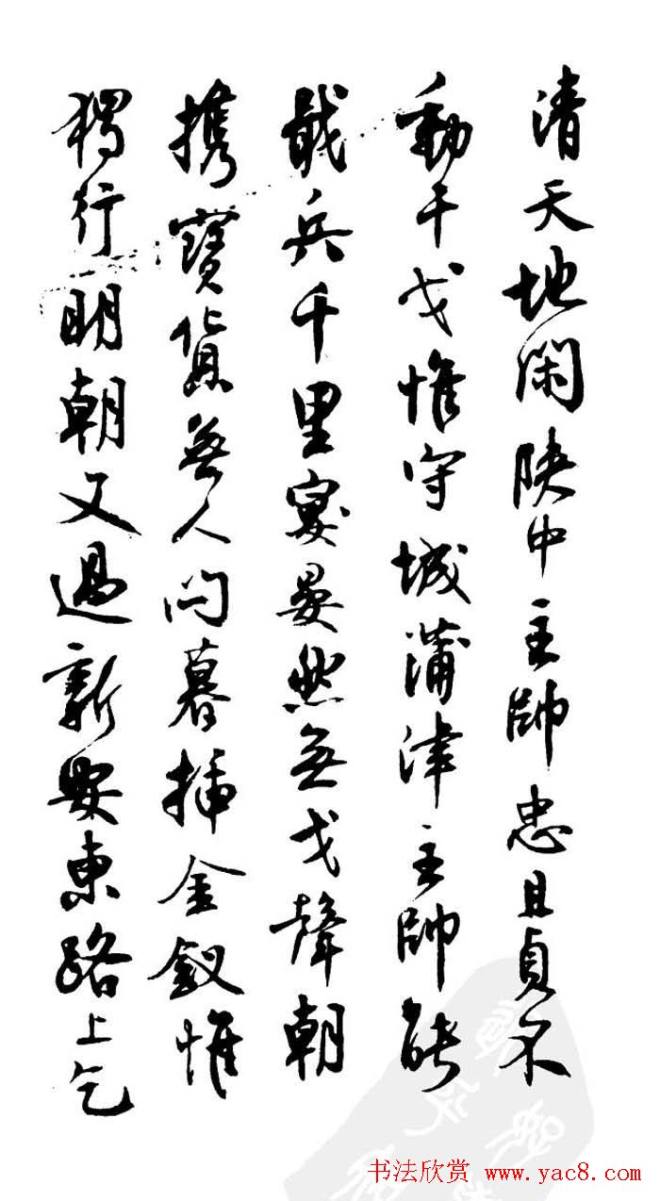 清天地閑陝中主帥忠且貞不
動干戈惟守城蒲津主帥能
戢兵千里宴晏然無戈聲朝
携寶貨無人問暮插金釵惟
獨行明朝又過新安東路上乞
书法欣赏 www.yac8.com